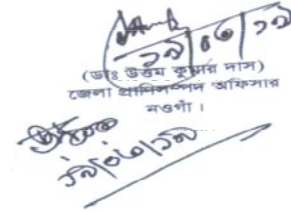 ১৯/০৩/১৯
(ডাঃ উত্তম কুমার দাস)
জেলা প্রাণিসম্পদ অফিসার
নওগাঁ।
১৯/০৩/১৯